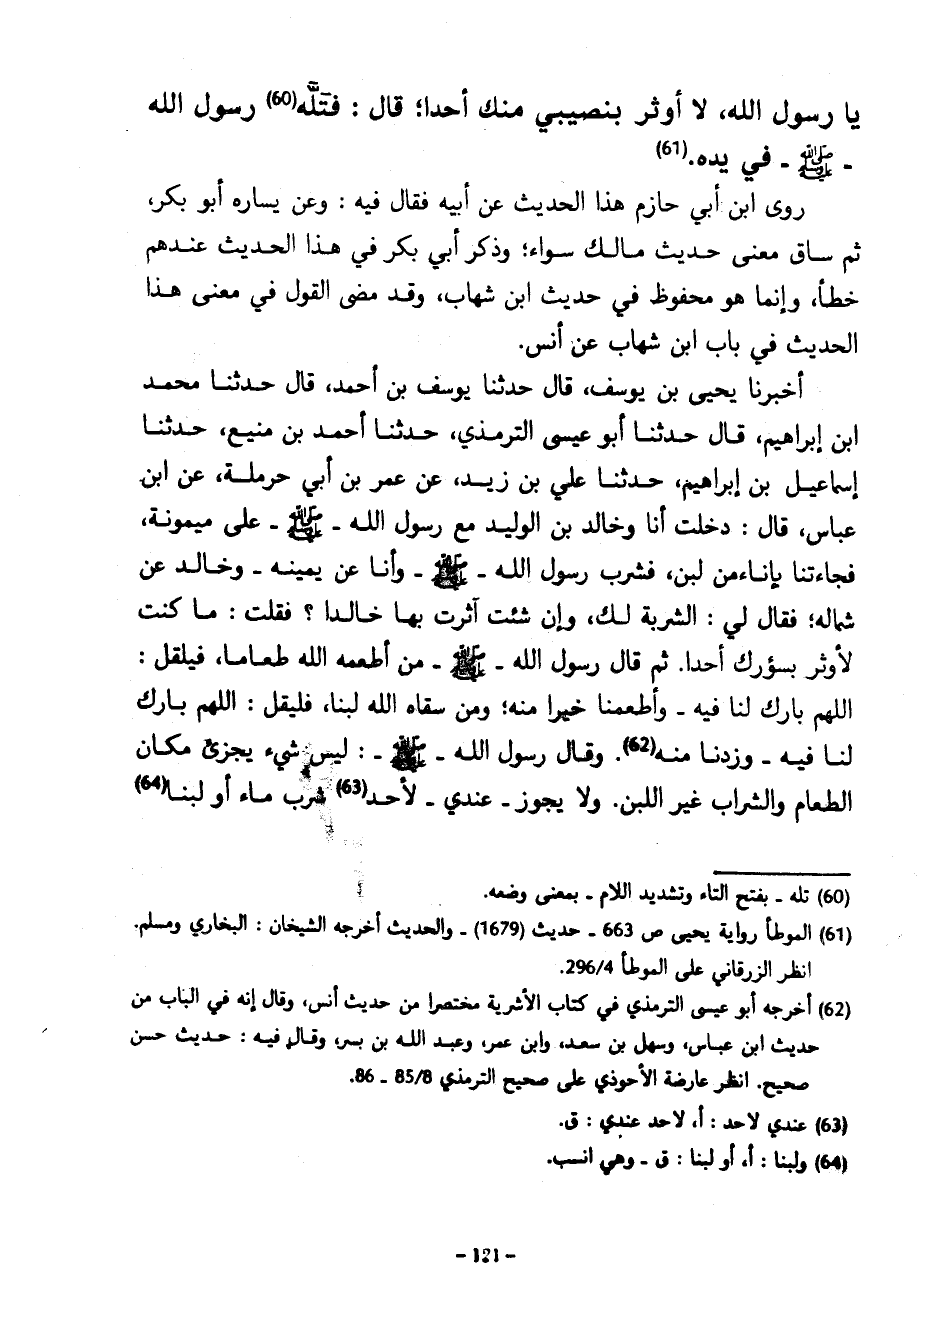 يا رسول الله، لا أوثر بنصيبي منك أحدا؛ قال : فتلَّه(60) رسول الله
ـ ﷺ ـ في يده.(61)
روى ابن أبي حازم هذا الحديث عن أبيه فقال فيه : وعن يساره أبو بكر،
ثم ساق معنى حديث مالك سواء؛ وذكر أبي بكر في هذا الحديث عندهم
خطأ، وإنما هو محفوظ في حديث ابن شهاب، وقد مضى القول في معنى هذا
الحديث في باب ابن شهاب عن أنس.
أخبرنا يحيى بن يوسف، قال حدثنا يوسف بن أحمد، قال حدثنا محمد
ابن إبراهيم، قال حدثنا أبو عيسى الترمذي، حدثنا أحمد بن منيع، حدثنا
إسماعيل بن إبراهيم، حدثنا علي بن زيد، عن عمر بن أبي حرملة، عن ابن
عباس، قال : دخلت أنا وخالد بن الوليد مع رسول الله ـ ﷺ ـ على ميمونة،
فجاءتنا بإناءمن لبن، فشرب رسول الله ـ ﷺ ـ وأنا عن يمينه ـ وخالد عن
شماله؛ فقال لي : الشربة لك، وإن شئت آثرت بها خالدا ؟ فقلت : ما كنت
لأوثر بسؤرك أحدا. ثم قال رسول الله ـ ﷺ ـ من أطعمه الله طعاما، فيلقل :
اللهم بارك لنا فيه ـ وأطعمنا خيرا منه؛ ومن سقاه الله لبنا، فليقل : اللهم بارك
لنا فيه ـ وزدنا منه(62). وقال رسول الله ـ ﷺ ـ : ليس شيء يجزئ مكان
الطعام والشراب غير اللبن. ولا يجوز ـ عندي ـ لأحد(63) شرب ماء أو لبنا(64)
(60) تله ـ بفتح التاء وتشديد اللام ـ بمعنى وضعه.
(61) الموطأ رواية يحيى ص 663 ـ حديث (1679) ـ والحديث أخرجه الشيخان : البخاري ومسلم.
انظر الزرقاني على الموطأ 296/4.
(62) أخرجه أبو عيسى الترمذي في كتاب الأشربة مختصرا من حديث أنس، وقال إنه في الباب من
حديث ابن عباس، وسهل بن سعد، وابن عمر، وعبد الله بن بسر، وقال فيه : حديث حسن
صحيح. انظر عارضة الأحوذي على صحيح الترمذي 85/8 ـ 86.
(63) عندي لاحد : أ، لاحد عندي : ق.
(64) ولبنا : أ، أو لبنا : ق ـ وهي انسب.
- 121 -